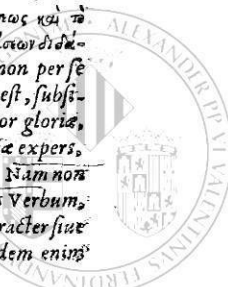 πως καὶ τὸ
διδά-
non per ſe
eſt, ſubſi-
or gloriæ,
æ expers,
Nam non
s Verbum,
racter ſiue
dem enim
ALEXANDER PP VI VALENTINVS FERDINANDVS